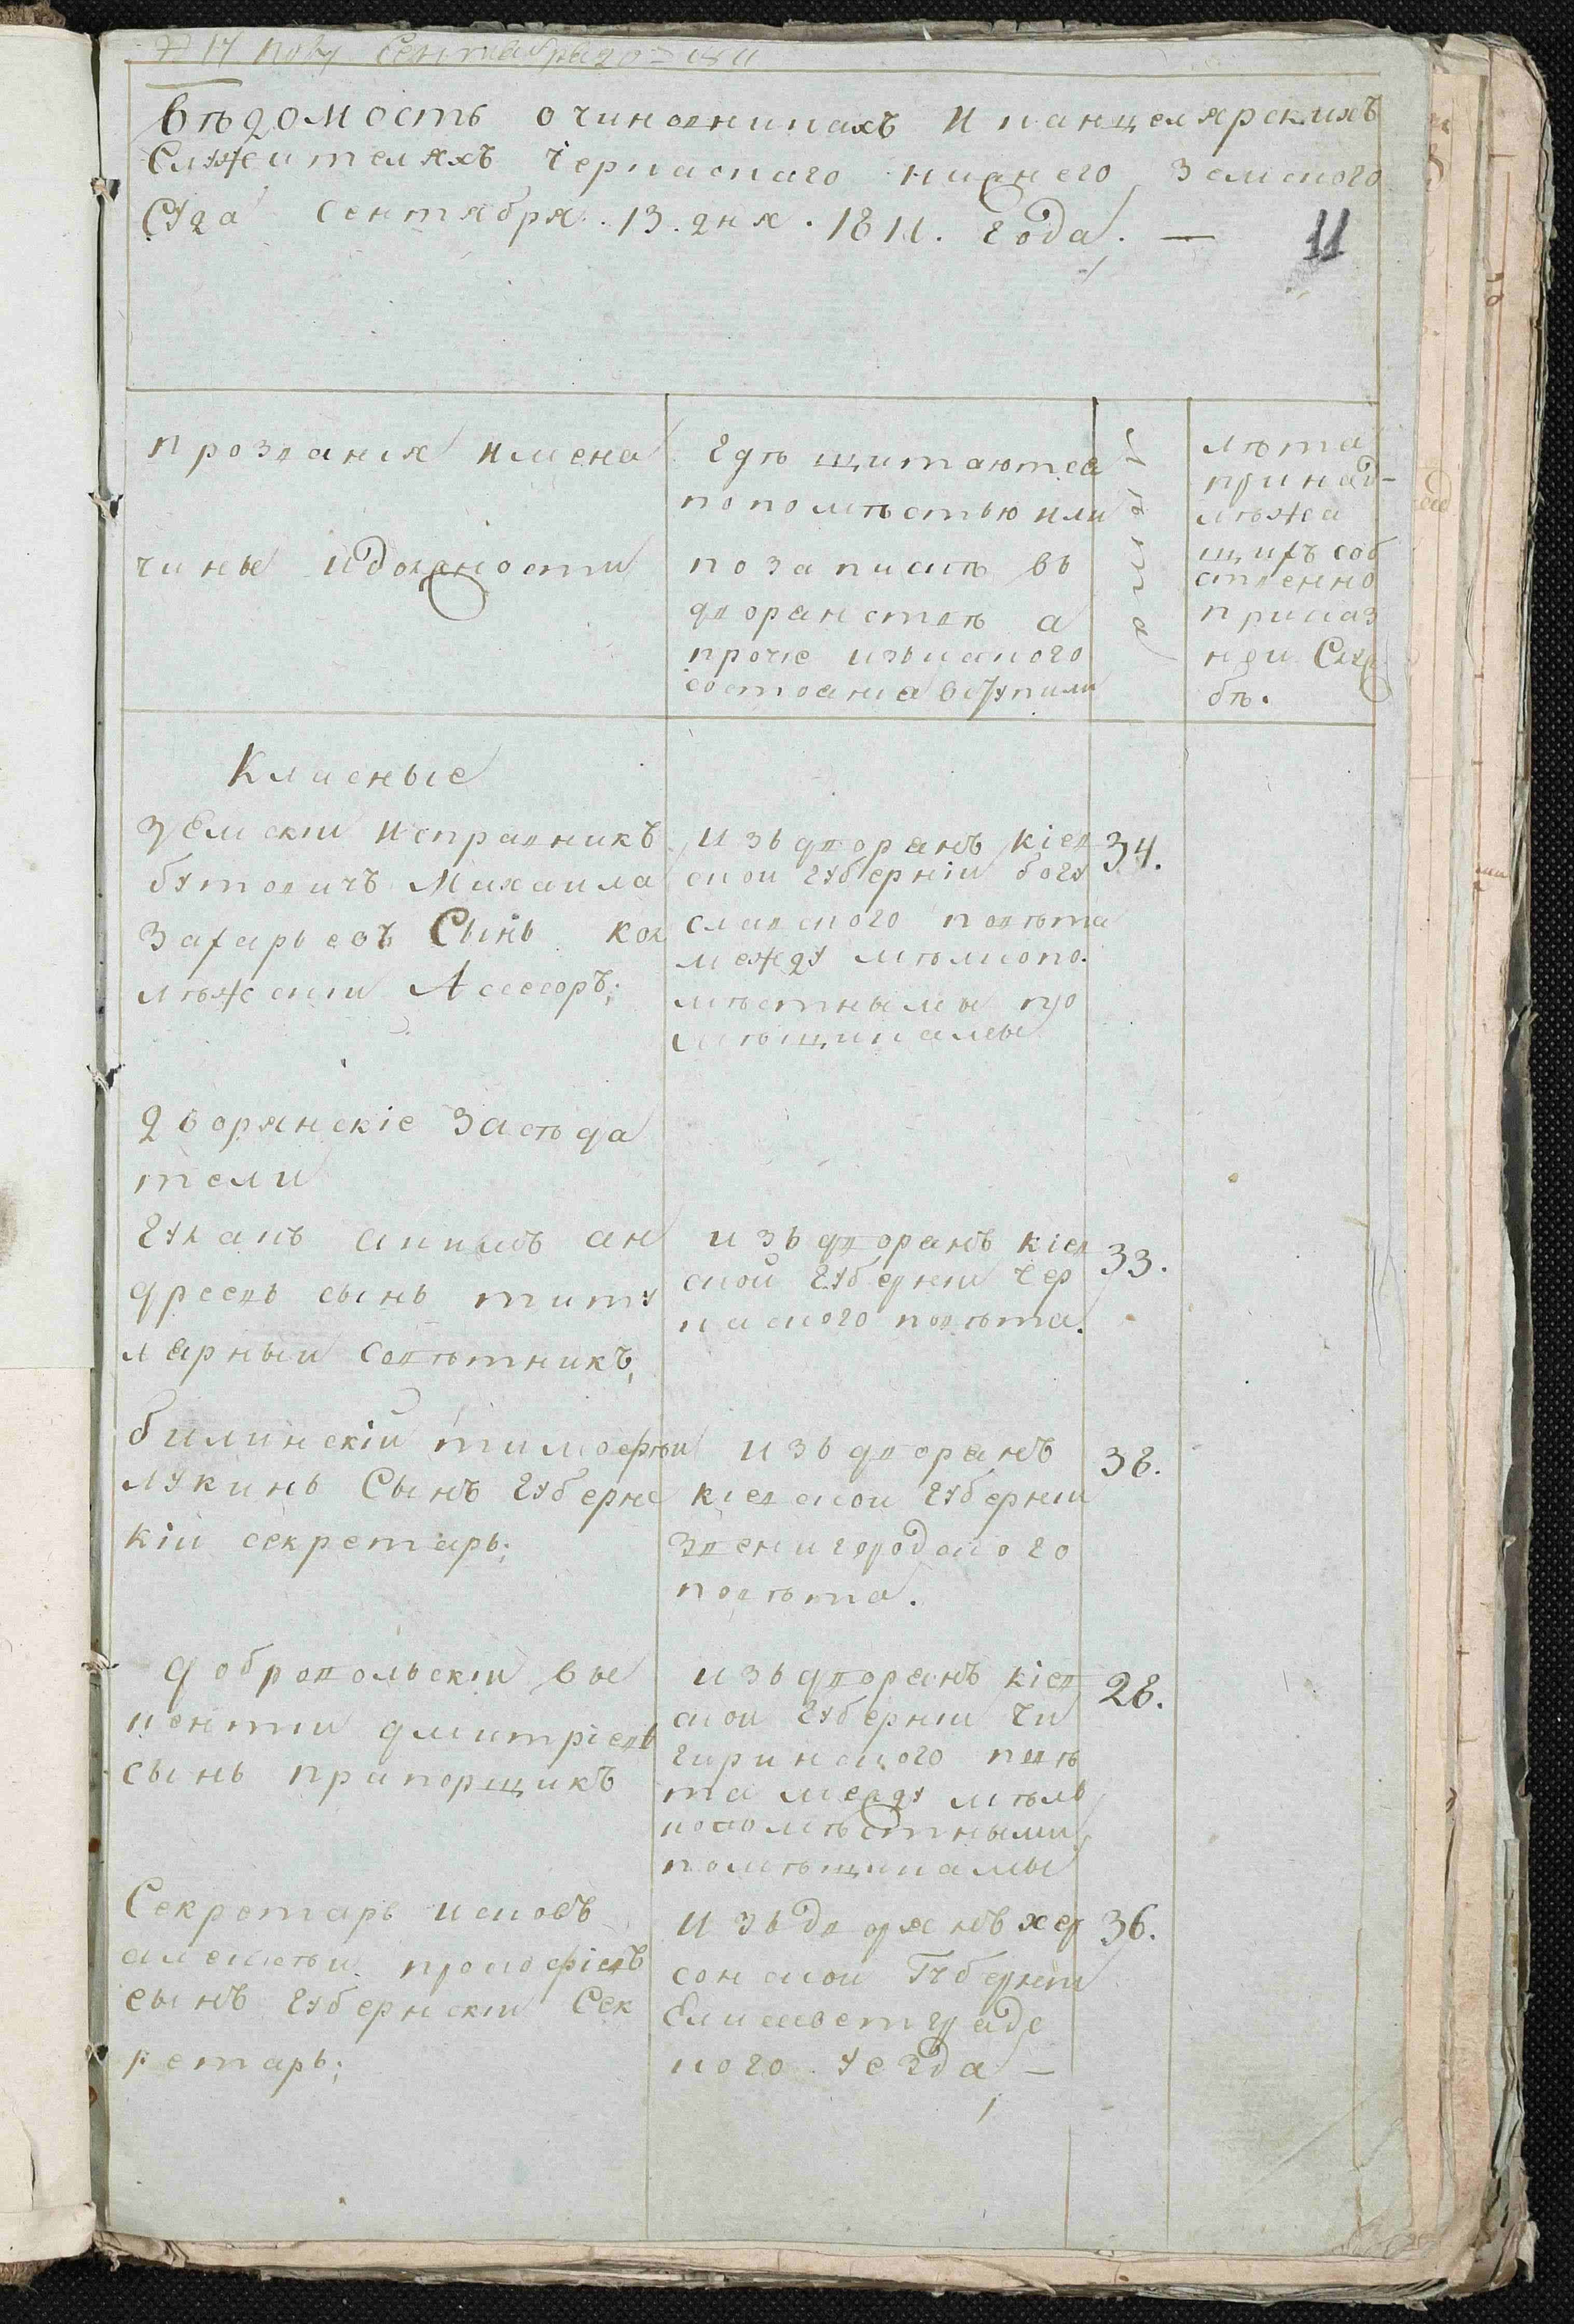 Вѣдомость о чиновникахъ И канцелярскихъ
Служителяхъ Черкаского нижнего Земского
Суда Сентября. 13. дня. 1811. года.
11
прозвания имена
чины идолжности
Гдѣ щитаются
попомѣстью или
позаписке въ
дворанствѣ а
прочіе изъкакого
состоания вступили
лѣта
лѣта
принад-
лѣжа
щихъ соб
ственно
приказ
ной Служ
бѣ.
Класные
Земскіи Исправникъ
бутовичъ Михаила
Захарьевъ Сынъ кол
лѣжскіи Ассесоръ;
изъ дворанъ Кіев
скои губерніи богу
славского повѣта
между мѣлкопо.
мѣстнымы по
мѣщикамы
34.
Дворянскіе Засѣда
тели
Гулакъ акимъ ан
дреевъ сынъ титу
ларныи Совѣтникъ,
изъ дворанъ Кіев
ской губерніи Чер
каского повѣта.
33.
билинскіи тимофѣи
лукинъ Сынъ Губернс
кіи секретарь;
изъ дворанъ
Кіевскои Губерніи
Звенигородского
повѣта.
38.
добровольскіи ви
кенти дмитріевъ
сынъ прапорщикъ
изъ дворанъ Кіев
скои Губерніи Чи
гиринского повѣ
та между мѣль
копомѣстными
помѣщикамы
28.
Секретарь исковъ
алексѣи прокофіевъ
сынъ Губернскіи Сек
ретарь;
изъ дворянъ хер
сонскои Губерніи
Елисаветградс
кого уезда
36.